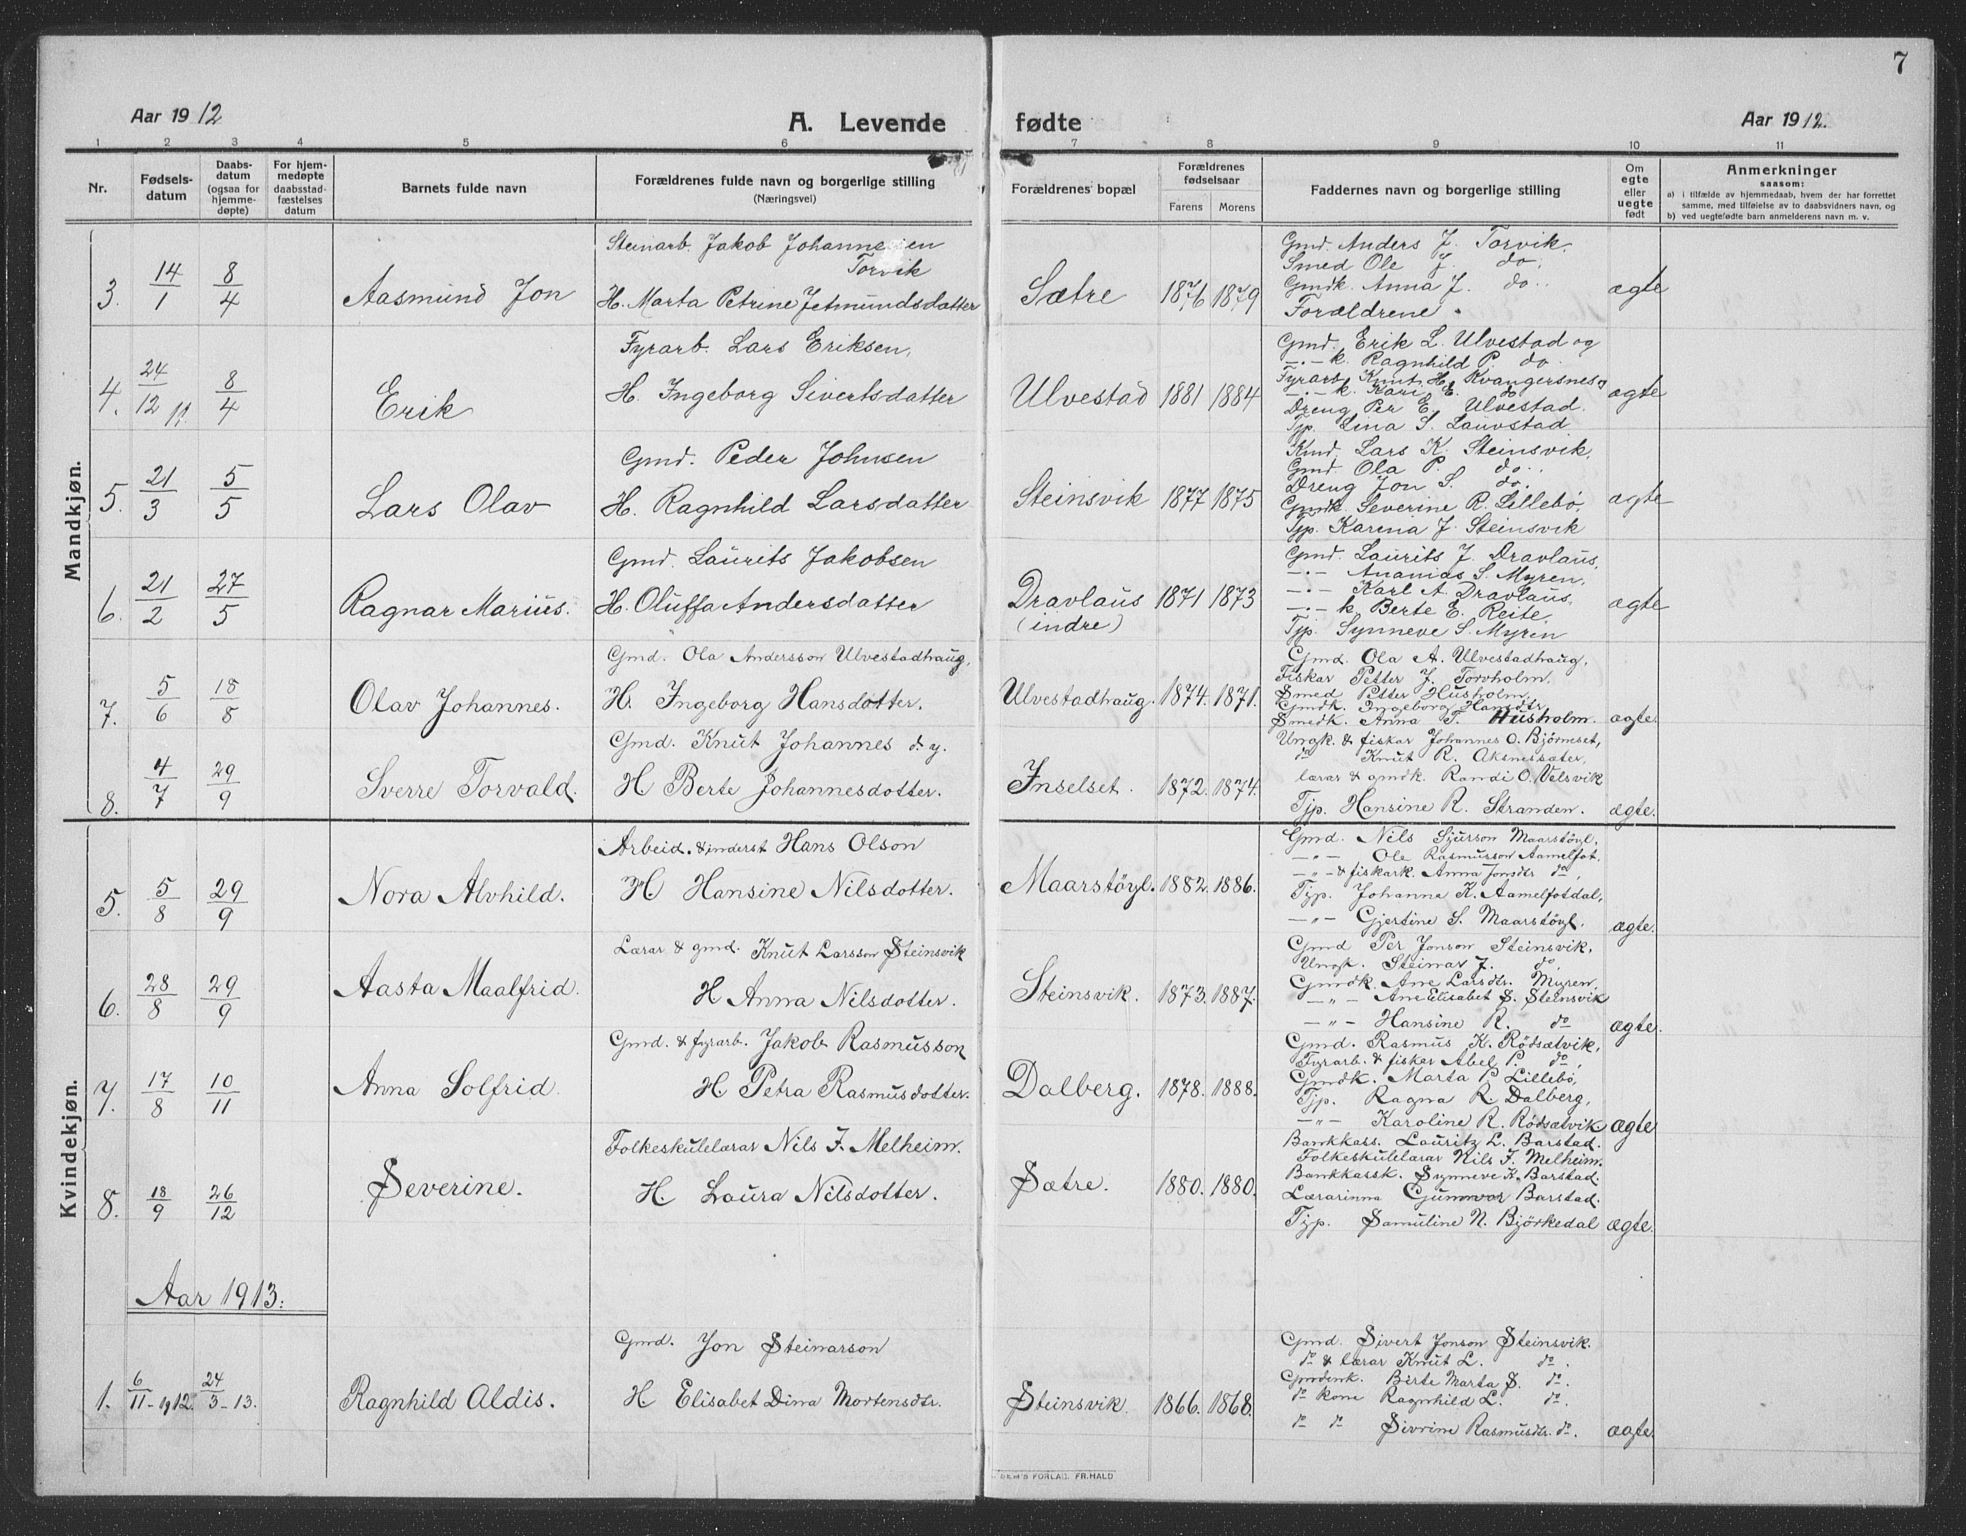 7
Aar 1912
A. Levende fødte
Aar 1912.
1 2 3 4 5 6 7 8 9 10 11
Nr.
Fødsels-
datum
Daabs-
datum
(ogsaa for
hjemme-
døpte)
For hjem-
medøpte
daabsstad-
fæstelses
datum
Barnets fulde navn
Forældrenes fulde navn og borgerlige stilling
(Næringsvei)
Forældrenes bopæl
Forældrenes
fødselsaar
Farens Morens
Faddernes navn og borgerlige stilling
Om
egte
eller
uegte
født
Anmerkninger
saasom:
a) i tilfælde av hjemmedaab, hvem der har forrettet
samme, med tilføielse av to daabsvidners navn, og
b) ved uegtefødte barn anmelderens navn m. v.
Mandkjøn.
3. 14/1 8/4 Aasmund Jon
Steinarb. Jakob Johannesen
Torvik
H. Marta Petrine Jetmundsdatter
Sætre 1876 1879
Gmd. Anders J. Torvik.
Smed Ole J. do.
Gmdk. Anna J. do.
Forældrene.
ægte
4. 24/12 11. 8/4 Erik
Fyrarb. Lars Eriksen,
H. Ingeborg Sivertsdatter
Ulvestad 1881 1884
Gmd. Erik L. Ulvestad og
-.- k. Ragnhild P. do.
Fyrarb. Knut H. Kvangersnes
-.- k. Kari E. do
Dreng Per E. Ulvestad.
Tjp. Lina S. Lauvstad
ægte
5. 21/3 5/5 Lars Olav
Gmd. Peder Johnsen
H. Ragnhild Larsdatter
Steinsvik 1877 1875
Kmd. Lars K. Steinsvik,
Gmd. Ola P. do.
Dreng Jon S. do.
Gmdk. Severine R. Lillebø,
Tjp. Karena J. Steinsvik
ægte
6. 21/2 27/5 Ragnar Marius.
Gmd. Laurits Jakobsen
H. Oluffa Andersdatter
Dravlaus
(indre)
1871 1873
Gmd. Laurits J. Dravlaus,
-.- Ananias S. Myren,
-.- Karl A. Dravlaus,
-.- k. Berte E. Reite,
Tjp. Synneve S. Myren
ægte
7. 5/6 18/8 Olav Johannes.
Gmd. Ola Andersson Ulvestadhaug,
H. Ingeborg Hansdotter.
Ulvestadhaug. 1874. 1871.
Gmd. Ola A. Ulvestadhaug,
Fiskar Petter J. Torvholm,
Smed Petter Husholm,
Gmdk. Ingeborg Hansdtr,
Smedk. Anna T. Husholm.
ægte.
8. 4/7 29/9 Sverre Torvald.
Gmd. Knut Johannes d. y.
H Berte Johannesdotter.
Inselset. 1872. 1874.
Ungk. & fiskar Johannes O. Bjørneset,
do Knut R. Aknessæter,
lærar & gmdk. Randi O. Velsvik
Tjp. Hansine R. Stranden.
ægte.
Kvindekjøn.
5. 5/8 29/9 Nora Alvhild.
Arbeid. & inderst Hans Olson
H Hansine Nilsdotter.
Maarstøyl. 1882. 1886.
Gmd. Nils Sjurson Maarstøyl,
-"- Ole Rasmusson Aamelfot,
-"- & fiskark. Anna Jonsdtr do,
Tjp. Johanna K. Aamelfotdal,
-"- Gjertine S. Maarstøyl.
ægte.
6. 28/8 29/9 Aasta Maalfrid.
Lærar & gmd. Knut Larsson Steinsvik
H Anna Nilsdotter.
Steinsvik. 1873. 1887.
Gmd Per Jonson Steinsvik,
Ungk. Steinar J. do,
Gmdk. Ane Larsdtr. Myren,
-"- Ane Elisabet S. Steinsvik
-"- Hansine R. do
ægte.
7. 17/8 10/11 Anna Solfrid.
Gmd. & fyrarb. Jakob Rasmusson
H Petra Rasmusdotter.
Dalberg. 1878. 1888.
Gmd. Rasmus K. Rødsætvik,
Fyrarb. & fiskar Abel P. do,
Gmdk. Marta P Lillebø,
Tjp. Ragna R. Dalberg,
-"- Karoline R. Rødsætvik
ægte
8. 18/9 26/12 Severine.
Folkeskulelærar Nils J. Melheim.
H. Laura Nilsdotter.
Sætre. 1880. 1880.
Bankkass. Lauritz L. Barstad.
Folkeskulelærar Nils J. Melheim.
Bankkassk. Synneve K. Barstad.
Lærarinna Gunnvor Barstad.
Tjp. Samuline N. Bjørkedal
ægte.
Aar 1913.
1. 6/11-1912. 24/3-13. Ragnhild Aldis.
Gmd. Jon Steinarson
H. Elisabet Dina Mortensdtr.
Steinsvik. 1866. 1868.
Gmd. Sivert Jonson Steinsvik.
do & lærar Knut L. do.
Gmdenk. Berte Marta S. do.
do kone Ragnhild L. do.
do do Sivrine Rasmusdtr. do.
ægte.
FORLAG. FR. HALD